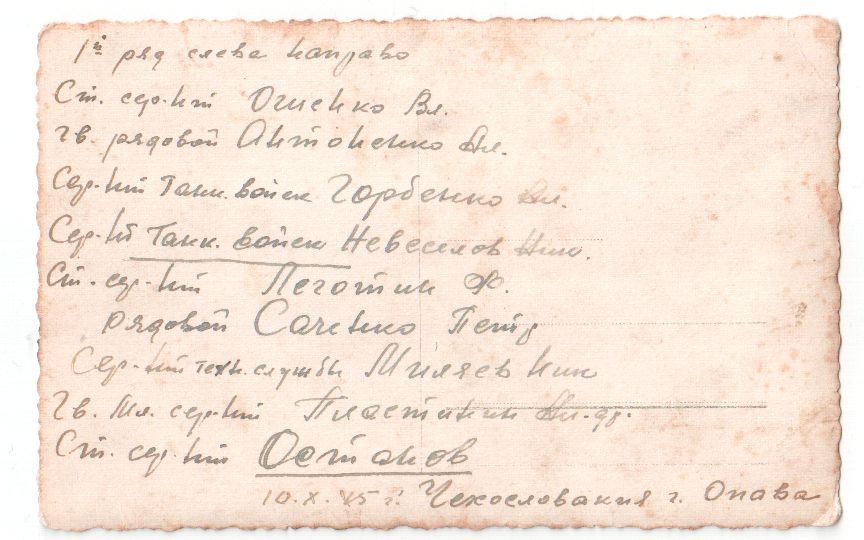 1й ряд слева направо
Ст. сер-нт Описько Вл.
Гв. рядовой Антоненко Ал.
Сер-нт Танк. войск Горбенко Ал.
Сер-нт Танк. войск Невеселов Ник.
Ст. сер-нт Леготин Ф.
рядовой Саченко Петр
Сер-нт техн. службы Миляев Ник
Гв. Мл. сер-нт Пластинин Ал-др.
Ст. сер-нт Остапов
10.X.45 г. Чехословакия г. Опава